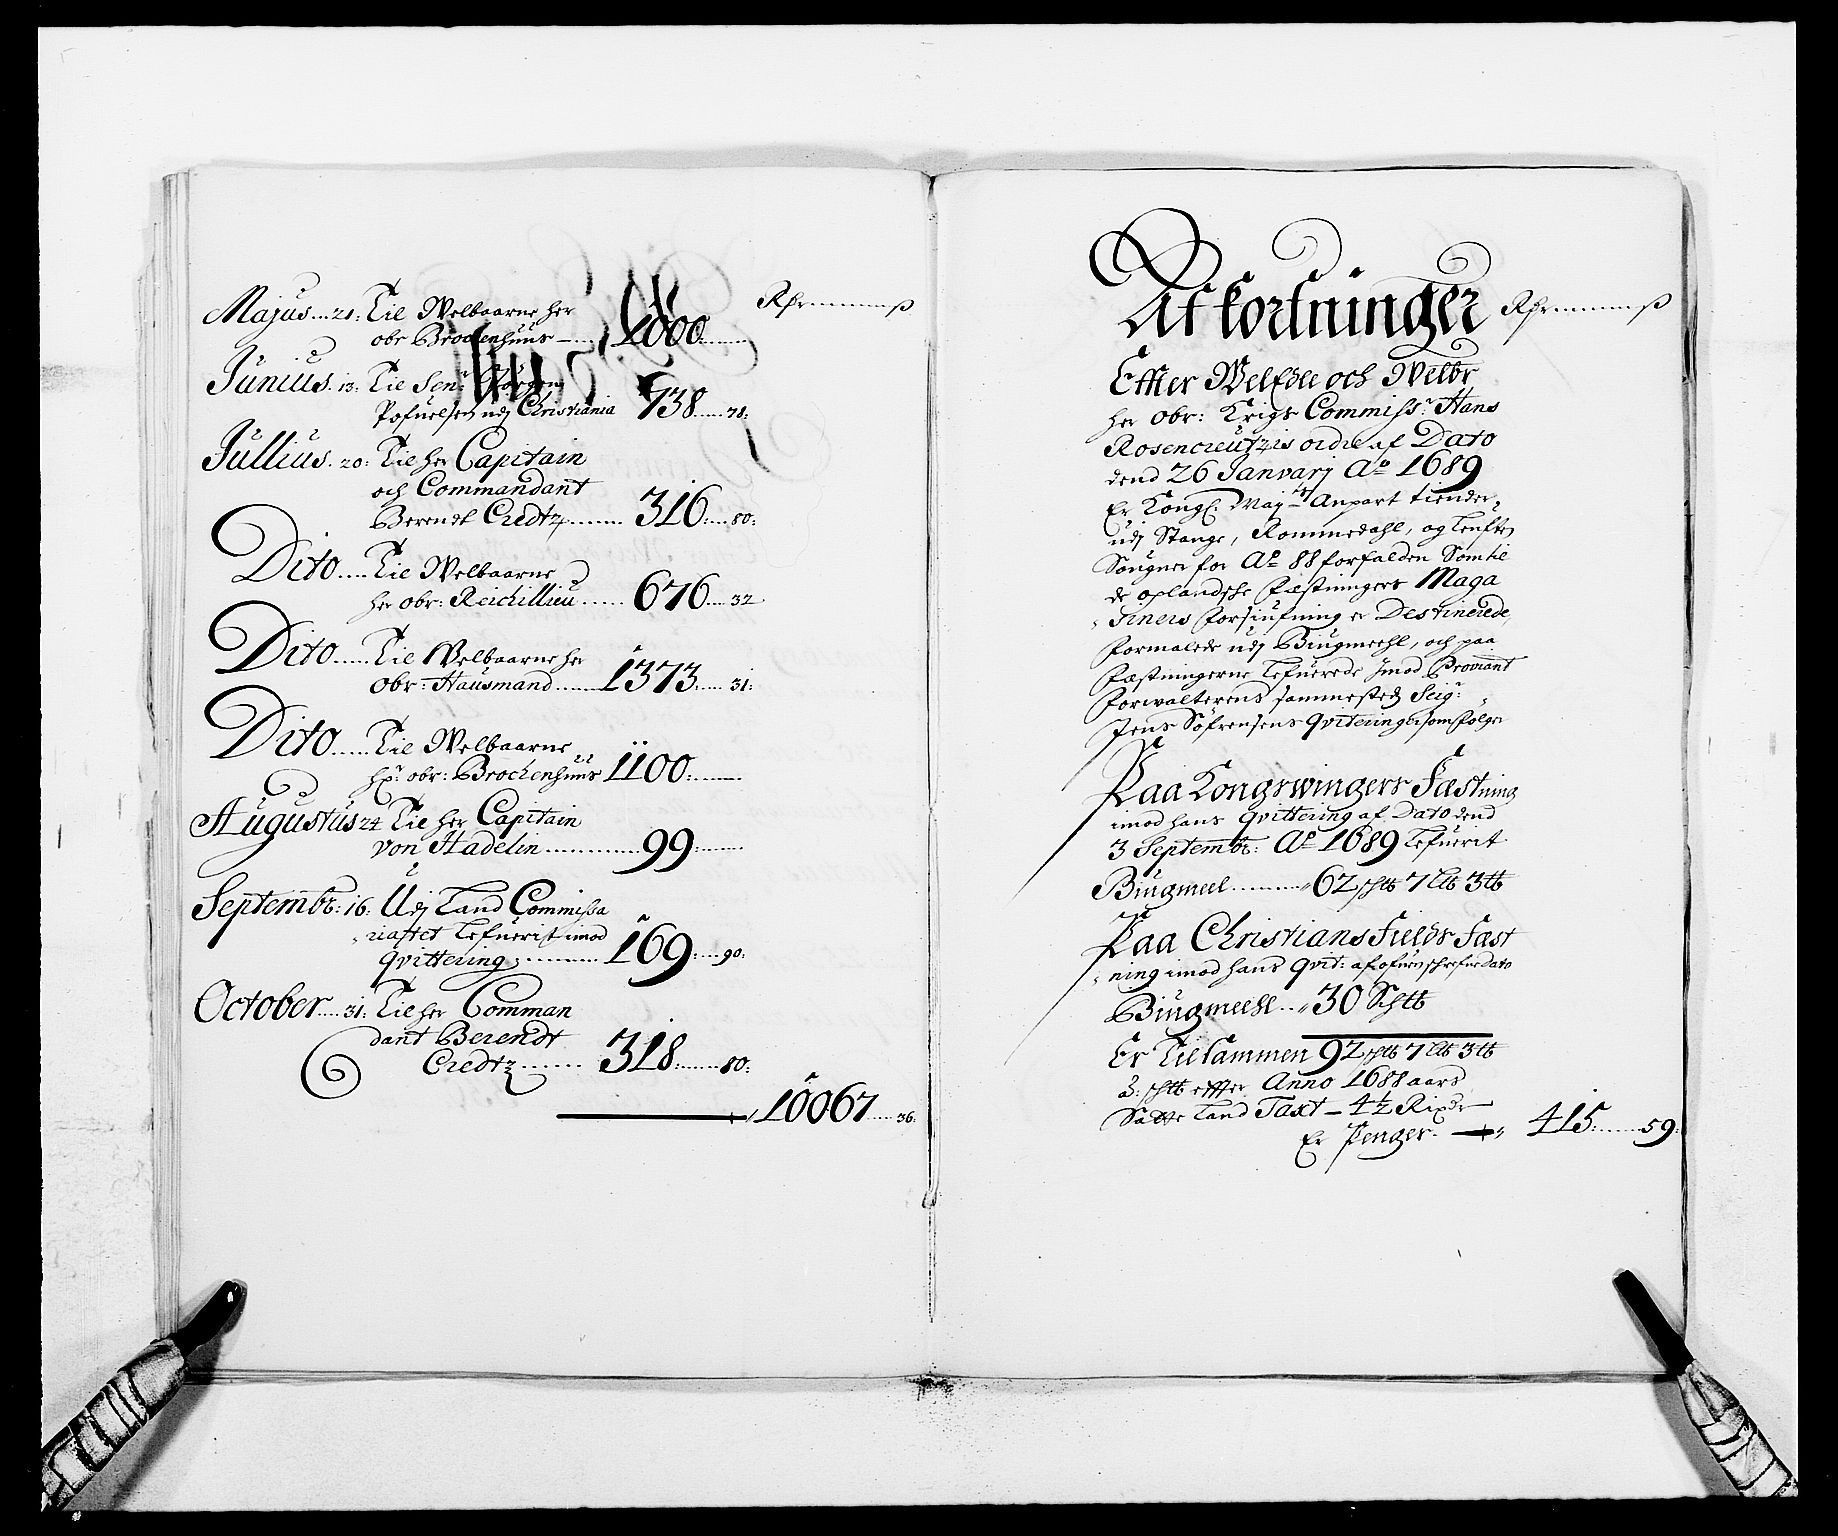 Rdr ß
Majus 21: Til Welbaarne her
obr Brockenhuus 1000
Junius 13: Til Senr Jørgen
Pofuelsen udj Christiania 738 78:
Jullius 20: Til her Capitain
och Commandant
Berendt Credtz 316 80:
Dito Til Welbaarne
her obr: Reichillieu 676 32
Dito Til Welbaarne her
obr: Hausmand 1373 31:
Dito Til Welbaarne
hr obr: Brockenhuus 1100:
Augustus 24 Til her Capitain
von Hadelin 99
Septembr: 16: Udj Land Commissa
riaftet Lefuerist imod
Qvittering 169 90:
October 31: Til her Comman
dant Berendt
Credtz 318 80:
10067 36:
Afkortninger Rdr ß
Effter Welædle och Welbr
her obr: Krigs Commissr Hans
Rosencreutzis ordre af Dato
dend 26 Janvarj Ao 1689
Er Kongl: Mayts Anpart tiender
udj Stange, Rommedahl, og Leufften
Sougner for Ao 88 forfalden Som til
de oplandsche Fæstningers Maga
ziners forsiufning er Destinerede,
formalede udj Biugmeehl, och paa
Fæstningerne Lefuerede imod Proviant
forwalterens sammesteds Seigr:
Jens Søfrensens Qviteringer som følger
Paa Kongswingers Fæstning
imod hans Qvittering af Dato dend
3 Septembr: Ao 1689 Lefuerit
Biugmeel 62 schtb 7 Ltb 3 tb
Paa Christians Fields Fæst
ning imod hans Qvit: af ofuenschrefne dato
Biugmeehl 30 Schtb
Er Tilsammen 92 schtb 7 Ltb 3 tb
à: schtb effter Anno 1688 aars
Satte Land Taxt 4½ Rixdr
Er Penger 415 59: